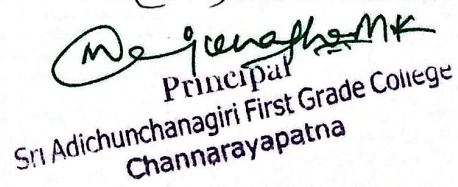 Principal
Sri Adichunchanagiri First Grade College
Channarayapatna